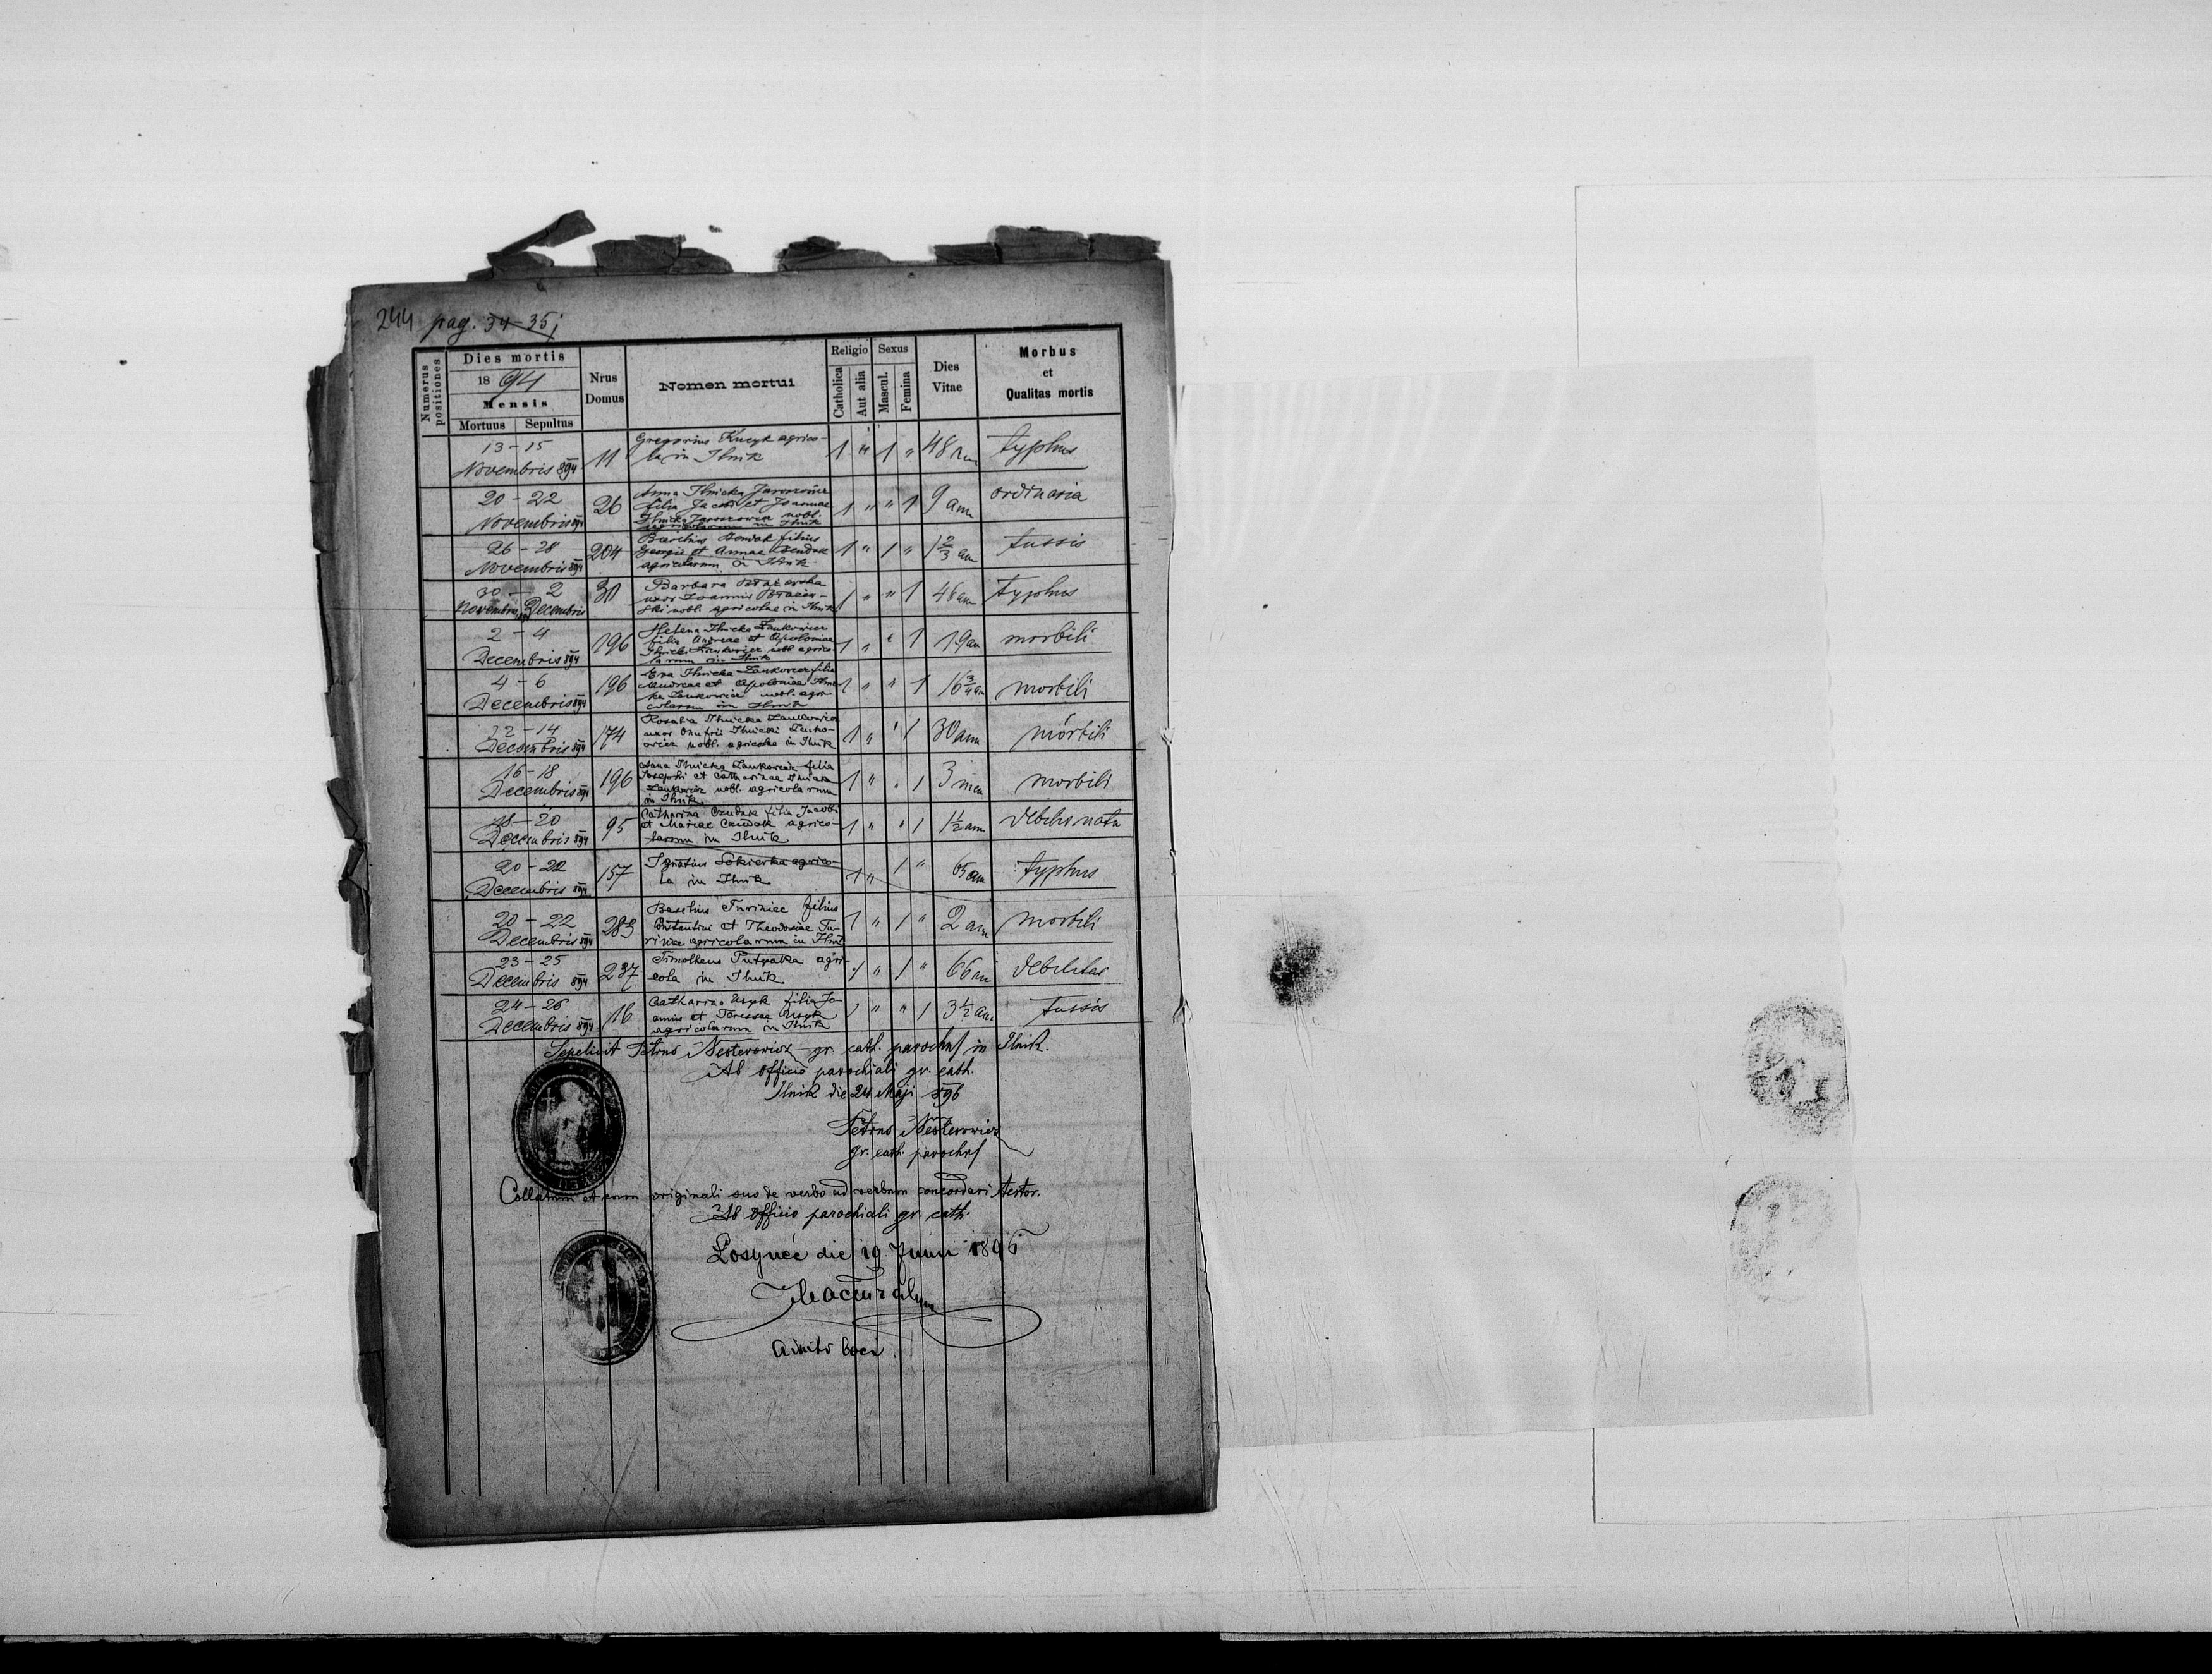 244 pag. 34-35;
Numerus positiones
Dies mortis
1894
Mensis
Mortuus Sepultus
Nrus Domus
Nomen mortui
Religio
Catholica
Aut alia
Sexus
Mascul.
Femina
Dies Vitae
Morbus et Qualitas mortis
13-15
Novembris 894
11
Gregorius Kucyk agrico-
la in Ilnik
1 " 1 "
48 ann
typhus
20-22
Novembris 894
26
Anna Ilnicka Jaroszowicz
filia Jacobi et Joannae
Ilnicka Jaroszowicz nobl.
agricolarum in Ilnik
1 " " 1
9 ann
ordinaria
26-28
Novembris 894
204
Basilius Dendak filius
Georgii et Annae Dendak
agricolarum in Ilnik
1 " 1 "
1 2/3 an
tussis
30 - 2
Novembris Decembris
894
30
Barbara
uxor Joannis
ski nobl. agricolae in Ilnik
1 " " 1
48 ann
typhus
2-4
Decembris 894
196
Helena Ilnicka Zankowicz
filia Andreae et Apoloniae
Ilnicki Zankowicz nobl. agrico-
larum in Ilnik
1 " " 1
19 an
morbili
4-6
Decembris 894
196
Eva Ilnicka Zankowicz filia
Andreae et Apoloniae Ilnic-
ka Zankowicz nobl. agri-
colarum in Ilnik
1 " " 1
16 3/4 an
morbili
12-14
Decembris 894
174
Rosalia Ilnicka Zankowicz
uxor Onufrii Ilnicki Zanko-
wicz nobl. agricolae in Ilnik
1 " " 1
30 ann
morbili
16-18
Decembris 894
196
Anna Ilnicka Zankowicz filia
Josephi et Catharinae Ilnicka
Zankowicz nobl. agricolarum
in Ilnik
1 " " 1
3 men
morbili
18-20
Decembris 894
95
Catharina Czudak filia Jacobi
et Mariae Czudak agrico-
larum in Ilnik
1 " " 1
1 1/2 ann
debilis nata
20-22
Decembris 894
157
Ignatius Sokierka agrico-
la in Ilnik
1 " 1 "
65 ann
typhus
20-22
Decembris 894
283
Basilius Turiniec filius
Constantini et Theodosiae Tu-
riniec agricolarum in Ilnik
1 " 1 "
2 ann
morbili
23-25
Decembris 894
237
Timotheus Putyatka agri-
cola in Ilnik
1 " 1 "
66 an
debilitas
24-26
Decembris 894
16
Catharina Usyk filia Jo-
annis et Teressae Usyk
agricolarum in Ilnik
1 " " 1
3 1/2 an
tussis
Sepelivit Petrus Nesterowicz gr. cath. parochus in Ilnik.
Ab officio parochiali gr. cath.
Ilnik die 24 Maji 896
Petrus Nesterowicz
gr. cath. parochus
Collatum et cum originali suo de verbo ad verbum concordari testor.
Ab officio parochiali gr. cath.
Łosyneć die 19 Junii 1896
Admtr loci.